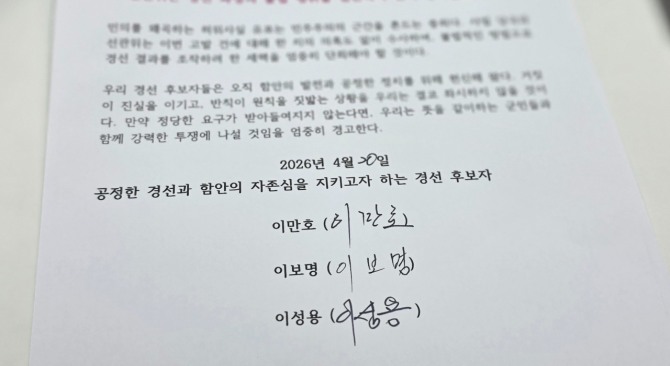 민의를 왜곡하는 허위사실 공표는 민주주의의 근간을 흔드는 중죄다.
선관위는 이번 고발 건에 대해 한 치의 의혹도 없이 수사하여, 불법적인 방법으로
경선 결과를 조작하려 한 세력을 엄중히 단죄해야 할 것이다.
우리 경선 후보자들은 오직 함안의 발전과 공정한 정치를 위해 헌신해 왔다. 거짓
이 진실을 이기고, 반칙이 원칙을 짓밟는 상황을 우리는 결코 좌시하지 않을 것이
다. 만약 정당한 요구가 받아들여지지 않는다면, 우리는 뜻을 같이하는 군민들과
함께 강력한 투쟁에 나설 것임을 엄중히 경고한다.
2026년 4월 20일
공정한 경선과 함안의 자존심을 지키고자 하는 경선 후보자
이만호 (이만호)
이보명 (이보명)
이성용 (이성용)